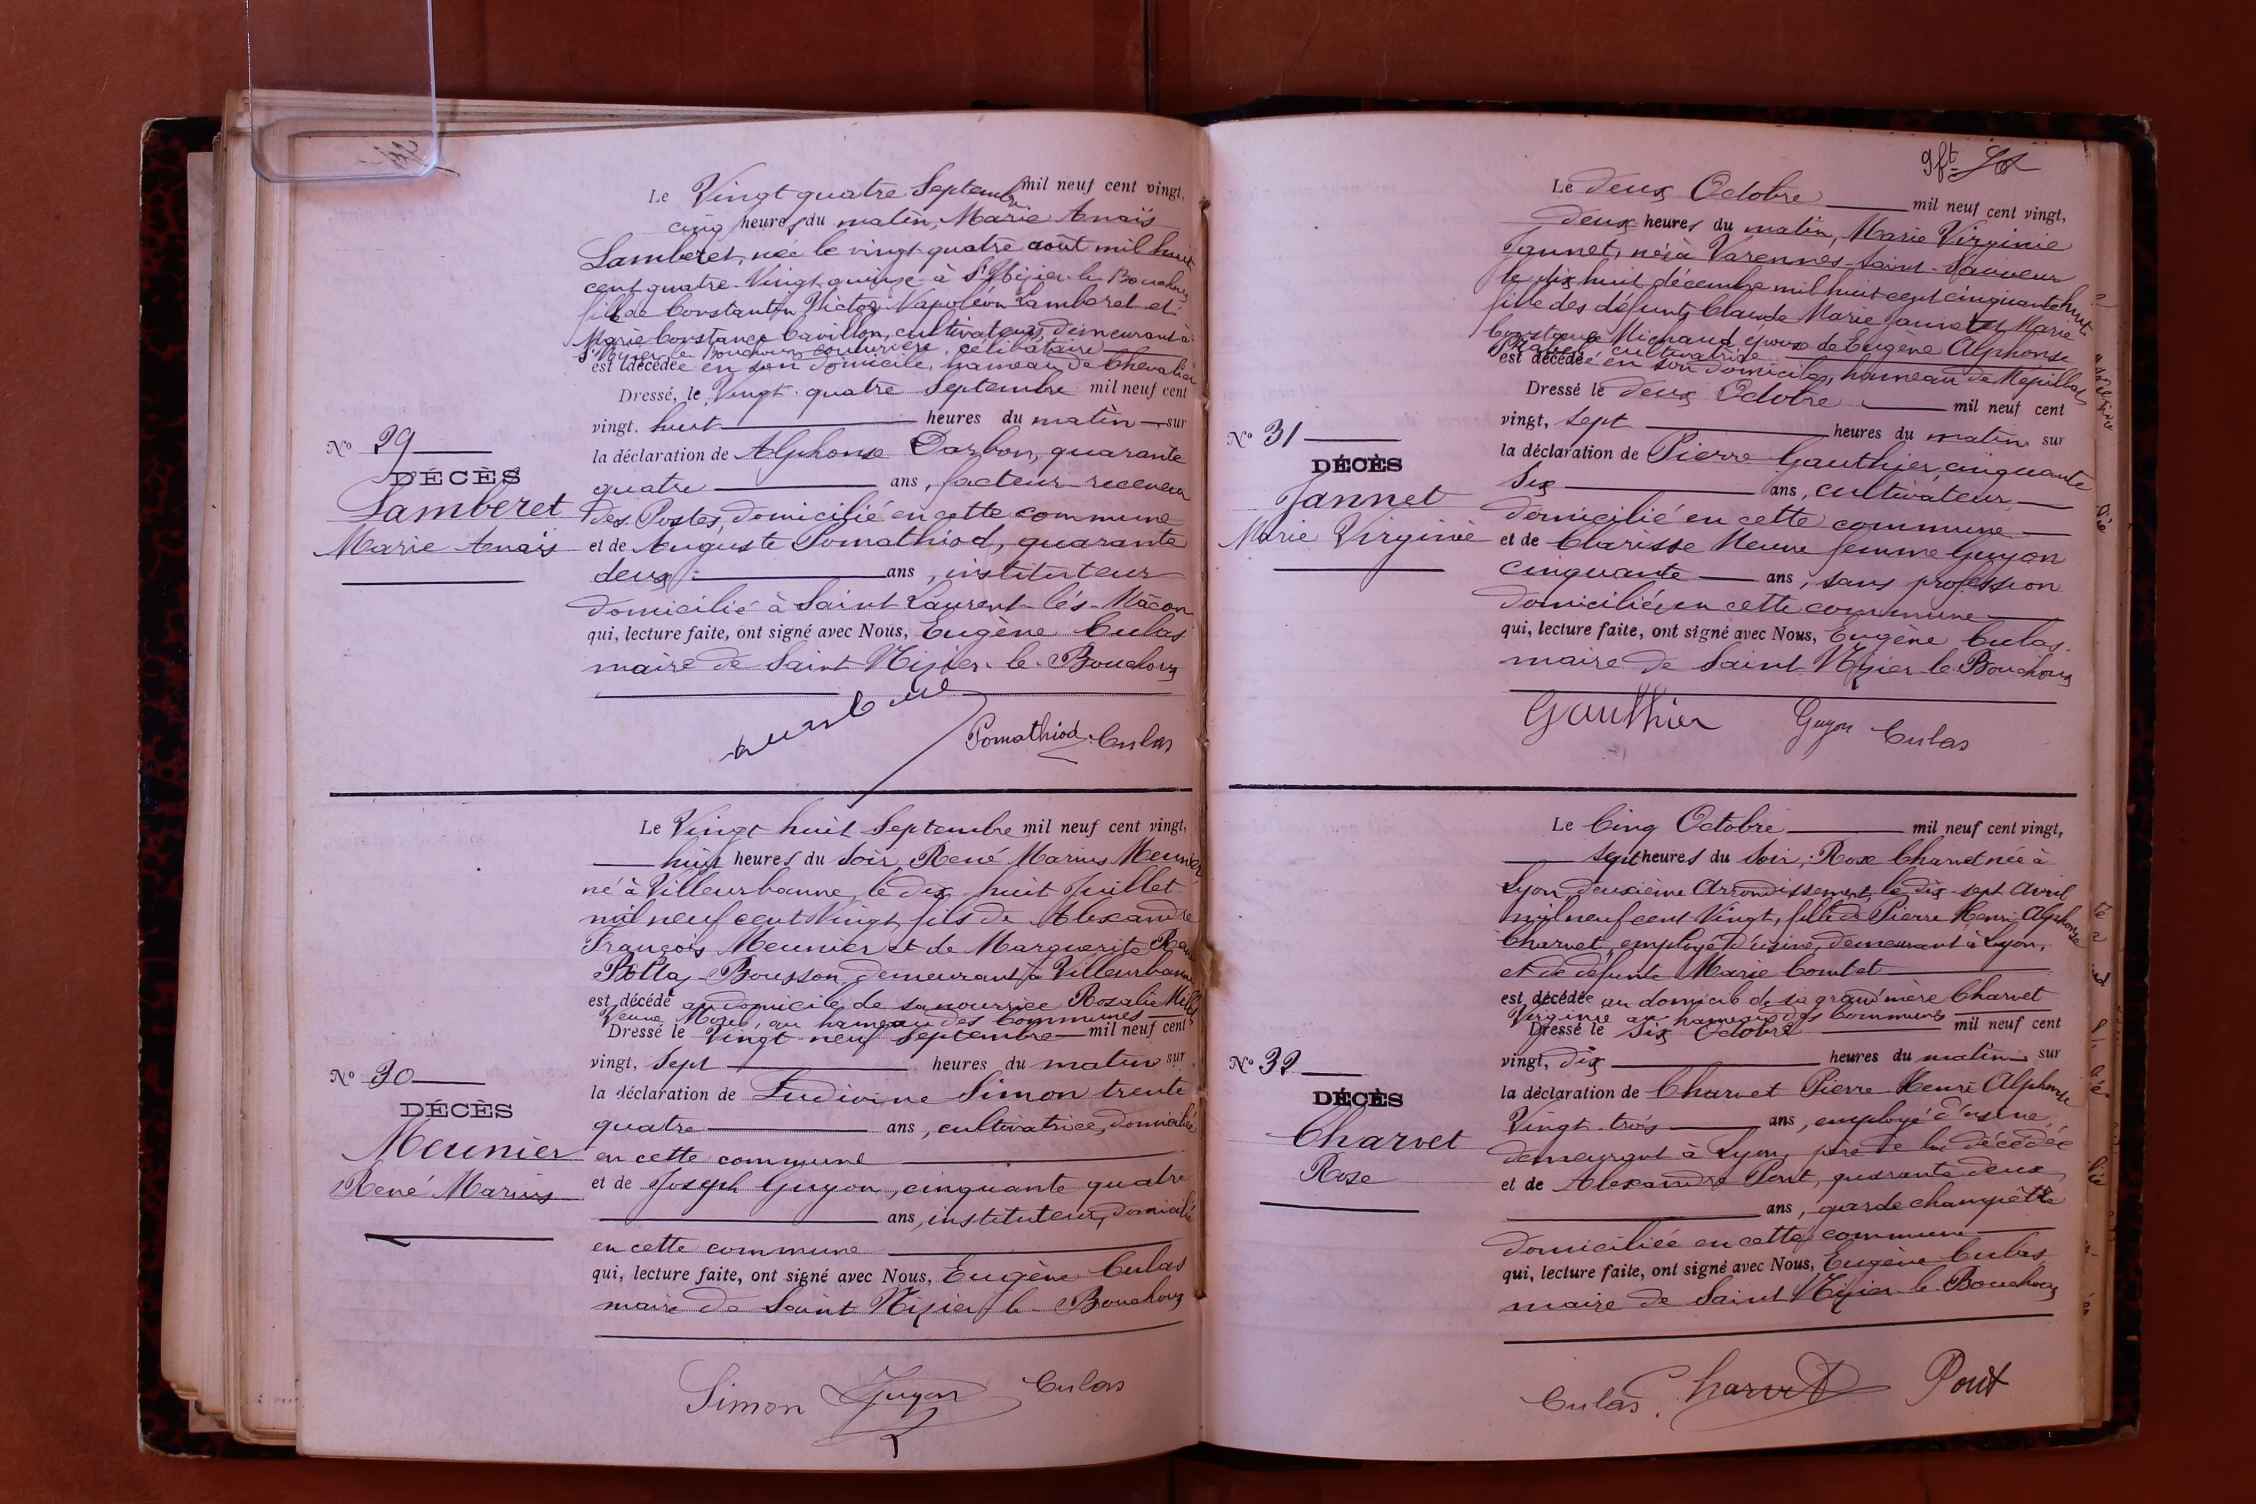 Le Vingt quatre Septembre mil neuf cent vingt,
cinq heures du matin, Marie Anaïs
Lamberet, née le vingt quatre août mil huit
cent quatre-Vingt quinze à St Nizier le Bouchoux
fille de Constantin Victor Napoléon Lamberet et
Marie Constance Cavillon, cultivateurs, demeurant à
St Nizier le Bouchoux couturière, célibataire
est décédée en son domicile, hameau de Chevalier
Dressé, le Vingt-quatre Septembre mil neuf cent
vingt, huit heures du matin sur
la déclaration de Alphonse Darbon, quarante
quatre ans, facteur-receveur
des Postes, domicilié en cette commune
et de Auguste Pomathiod, quarante
deux ans, instituteur
domicilié à Saint Laurent-lès-Mâcon
qui, lecture faite, ont signé avec Nous, Eugène Culas
maire de Saint Nizier-le-Bouchoux
No 29
DÉCÈS
Lamberet
Marie Anaïs
Pomathiod Culas
Le Vingt huit Septembre mil neuf cent vingt,
huit heures du soir, René Marius Meunier
né à Villeurbanne, le dix huit Juillet
mil neuf cent Vingt, fils de Alexandre
François Meunier et de Marguerite
Bousson demeurant à Villeurbanne
est décédé au domicile de sa nourrice Rosalie
Veuve au hameau des Communes
Dressé le Vingt-neuf Septembre mil neuf cent
vingt, sept heures du matin sur
la déclaration de Ludivine Simon trente
quatre ans, cultivatrice, domiciliée
en cette commune
et de Joseph Guyon, cinquante quatre
ans, instituteur, domicilié
en cette commune
qui, lecture faite, ont signé avec Nous, Eugène Culas
maire de Saint Nizier-le-Bouchoux
No 30
DÉCÈS
Meunier
René Marius
Simon Guyon Culas
Le deux Octobre mil neuf cent vingt,
deux heures du matin, Marie Virginie
Jannet, née à Varennes-Saint-Sauveur
le dix huit décembre mil huit cent cinquante huit
fille des défunts Claude Marie Jannet et Marie
Constance Michaud épouse de Eugène Alphonse
cultivatrice
est décédée en son domicile, hameau de Mépillat
Dressé le deux Octobre mil neuf cent
vingt, sept heures du matin sur
la déclaration de Pierre Gauthier, cinquante
six ans, cultivateur
domicilié en cette commune
et de Clarisse Meune femme Guyon
cinquante ans, sans profession
domiciliée en cette commune
qui, lecture faite, ont signé avec Nous, Eugène Culas
maire de Saint Nizier-le-Bouchoux
No 31
DÉCÈS
Jannet
Marie Virginie
Gauthier Guyon Culas
Le Cinq Octobre mil neuf cent vingt,
sept heures du soir, Rose Charvet née à
Lyon deuxième Arrondissement, le dix-sept avril
mil neuf cent Vingt, fille de Pierre Henri Alphonse
Charvet, employé d'usine, demeurant à Lyon,
et de défunte Marie Combet
est décédée au domicile de sa grand'mère Charvet
Virginie au hameau des Communes
Dressé le Six Octobre mil neuf cent
vingt, dix heures du matin sur
la déclaration de Charvet Pierre Henri Alphonse
Vingt-trois ans, employé d'usine,
demeurant à Lyon, père de la décédée
et de Alexandre Pont, quarante deux
ans, garde champêtre
domiciliée en cette commune
qui, lecture faite, ont signé avec Nous, Eugène Culas
maire de Saint Nizier-le-Bouchoux
No 32
DÉCÈS
Charvet
Rose
Culas Charvet Pont